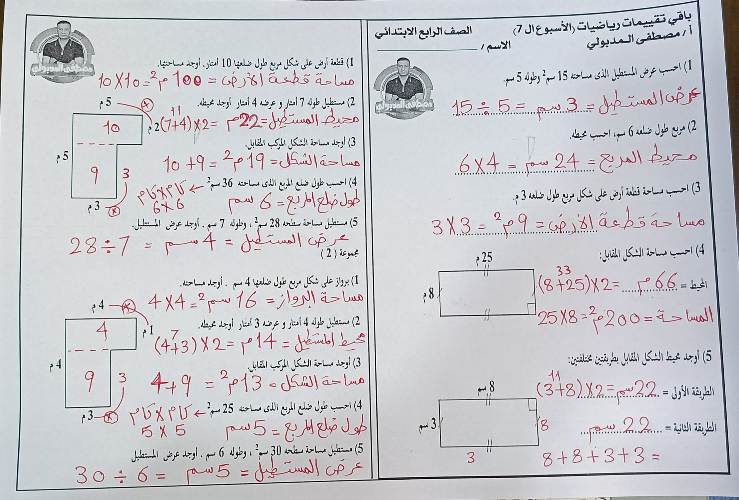 باقي تقييمات رياضيات (الأسبوع ال 7)
أ / مصطفى المدبولي
الصف الرابع الابتدائي
الاسم /
1) احسب عرض المستطيل الذي مساحته 15 سم² وطوله 5 سم.
عرض المستطيل = 3 سم = 15 ÷ 5
2) مربع طول ضلعه 6 سم ، احسب محيطه.
محيط المربع = 24 سم = 6 X 4
3) احسب مساحة قطعة أرض على شكل مربع طول ضلعها 3 م.
مساحة قطعة الأرض = 9 م² = 3 X 3
4) احسب مساحة الشكل المقابل:
25 م
8 م
33
المحيط = 66 م = (8+25)X2
المساحة = 200 م² = 25X8
5) أوجد محيط الشكل المقابل بطريقتين مختلفتين:
8 سم
3 سم
8
3
11
الطريقة الأولى = 22 سم = (3+8)X2
الطريقة الثانية = 22 سم
8+8+3+3 =
1) قطعة أرض على شكل مربع طول ضلعها 10 أمتار. أوجد مساحتها.
مساحة قطعة الأرض = 100 م² = 10X10
2) مستطيل طوله 7 أمتار وعرضه 4 أمتار أوجد محيطه.
11
محيط المستطيل = 22 م = (7+4)X2
3) أوجد مساحة الشكل المركب المقابل.
مساحة الشكل = 19 م² = 10+9
5 م
2 م
10
5 م
9
3
3 م
4) احسب طول ضلع المربع الذي مساحته 36 سم²
طول ضلع المربع = 6 سم
6X6
5) مستطيل مساحته 28 سم² ، وطوله 7 سم . أوجد عرض المستطيل.
عرض المستطيل = 4 سم = 28÷7
مجموعة ( 2 )
1) برواز على شكل مربع طول ضلعه 4 سم . أوجد مساحته.
مساحة البرواز = 16 سم² = 4X4
2) مستطيل طوله 4 أمتار وعرضه 3 أمتار . أوجد محيطه.
7
محيط المستطيل = 14 م = (4+3)X2
3) أوجد مساحة الشكل المركب المقابل.
مساحة الشكل = 13 م² = 4+9
4 م
1 م
4
4 م
9
3
3 م
4) احسب طول ضلع المربع الذي مساحته 25 سم²
طول ضلع المربع = 5 سم
5 X 5
5) مستطيل مساحته 30 سم² ، وطوله 6 سم . أوجد عرض المستطيل.
عرض المستطيل = 5 سم = 30 ÷ 6